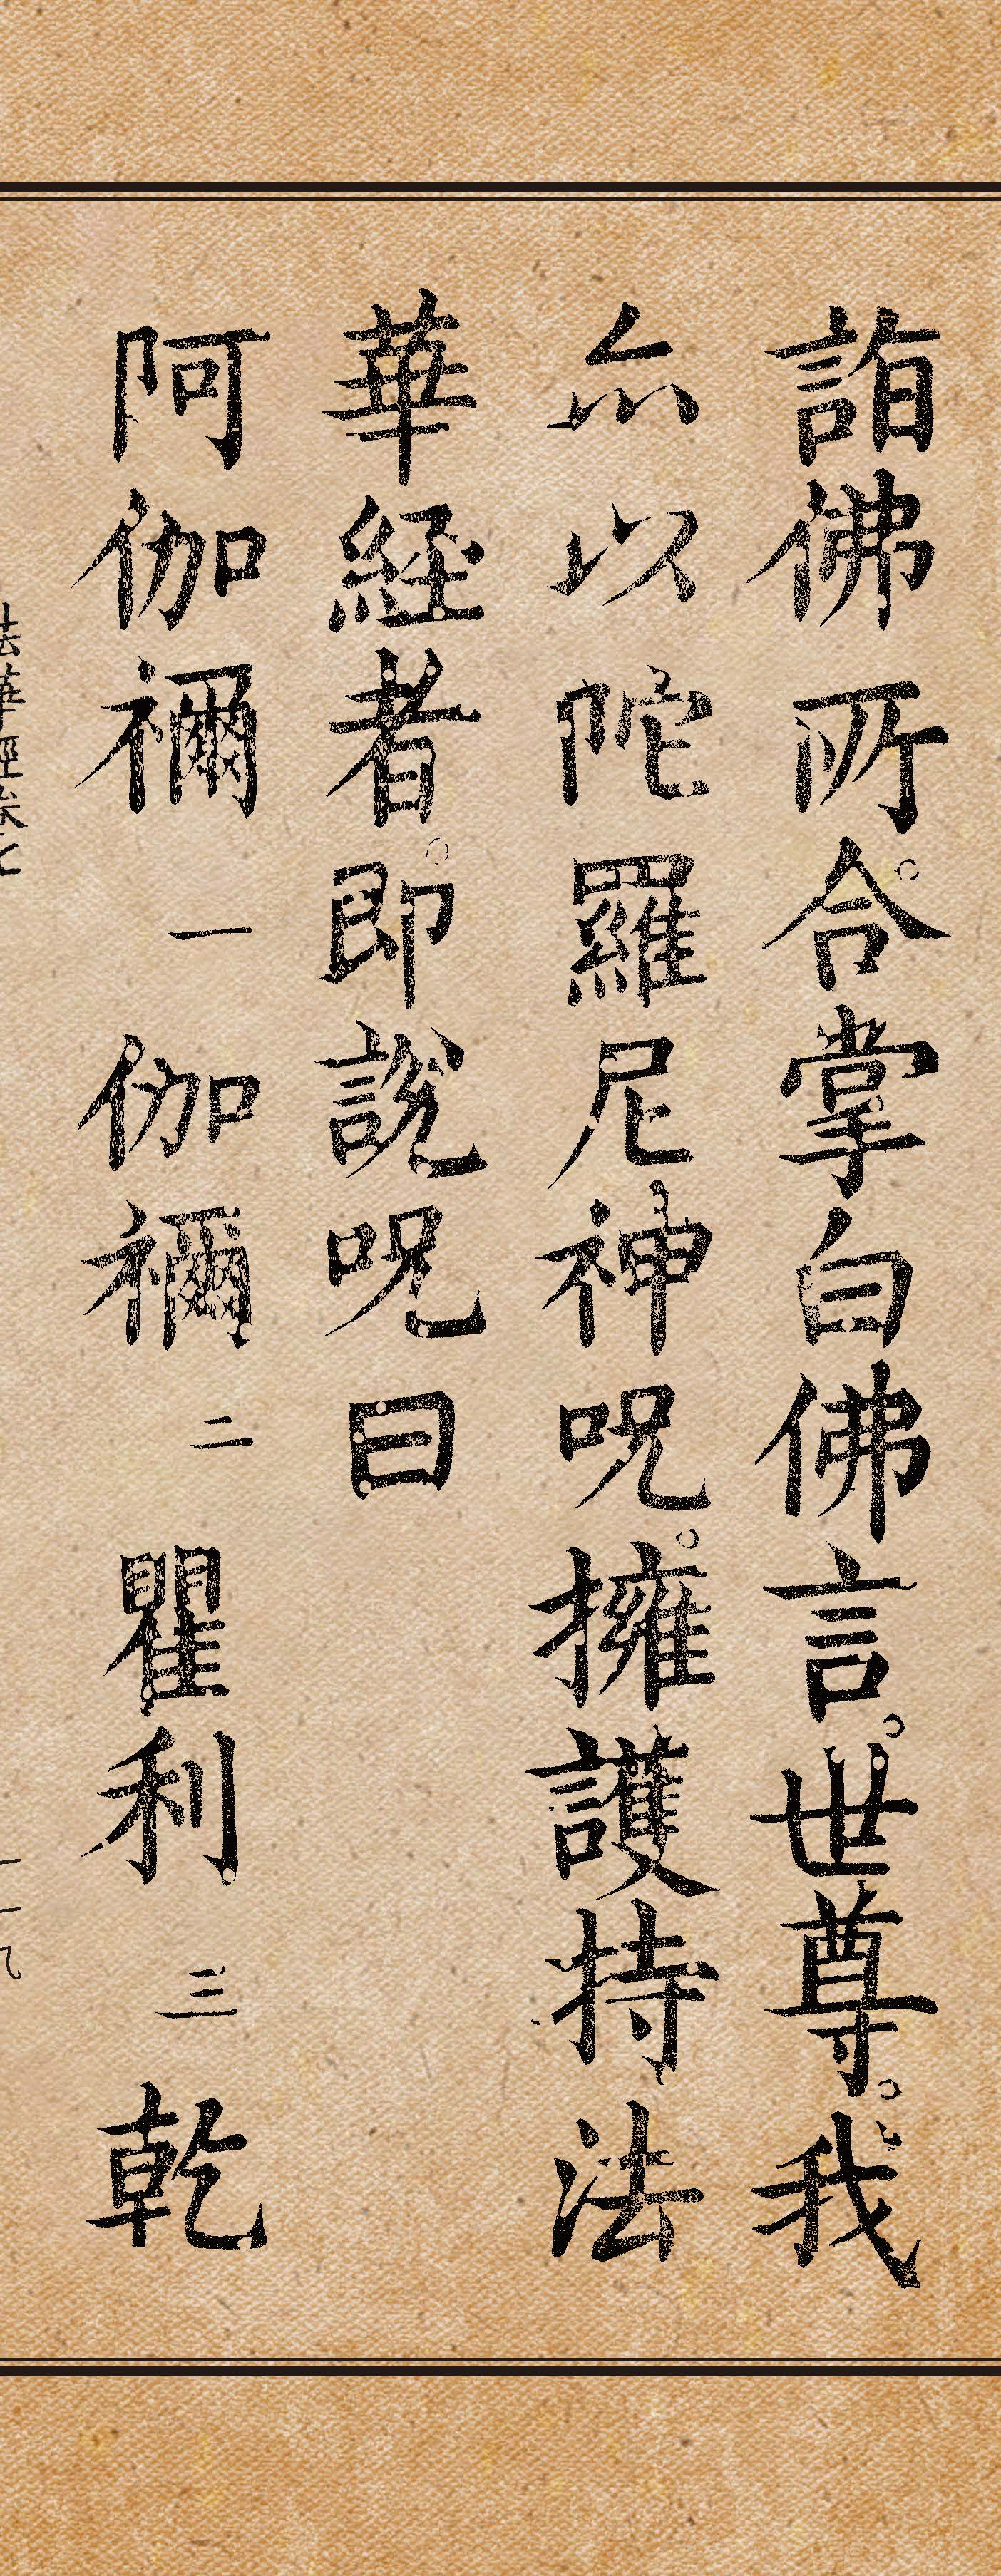 詣佛所。合掌白佛言。世尊。我
亦以陀羅尼神呪。擁護持法
華經者。即說呪曰
阿伽禰 一 伽禰 二 瞿利 三 乾